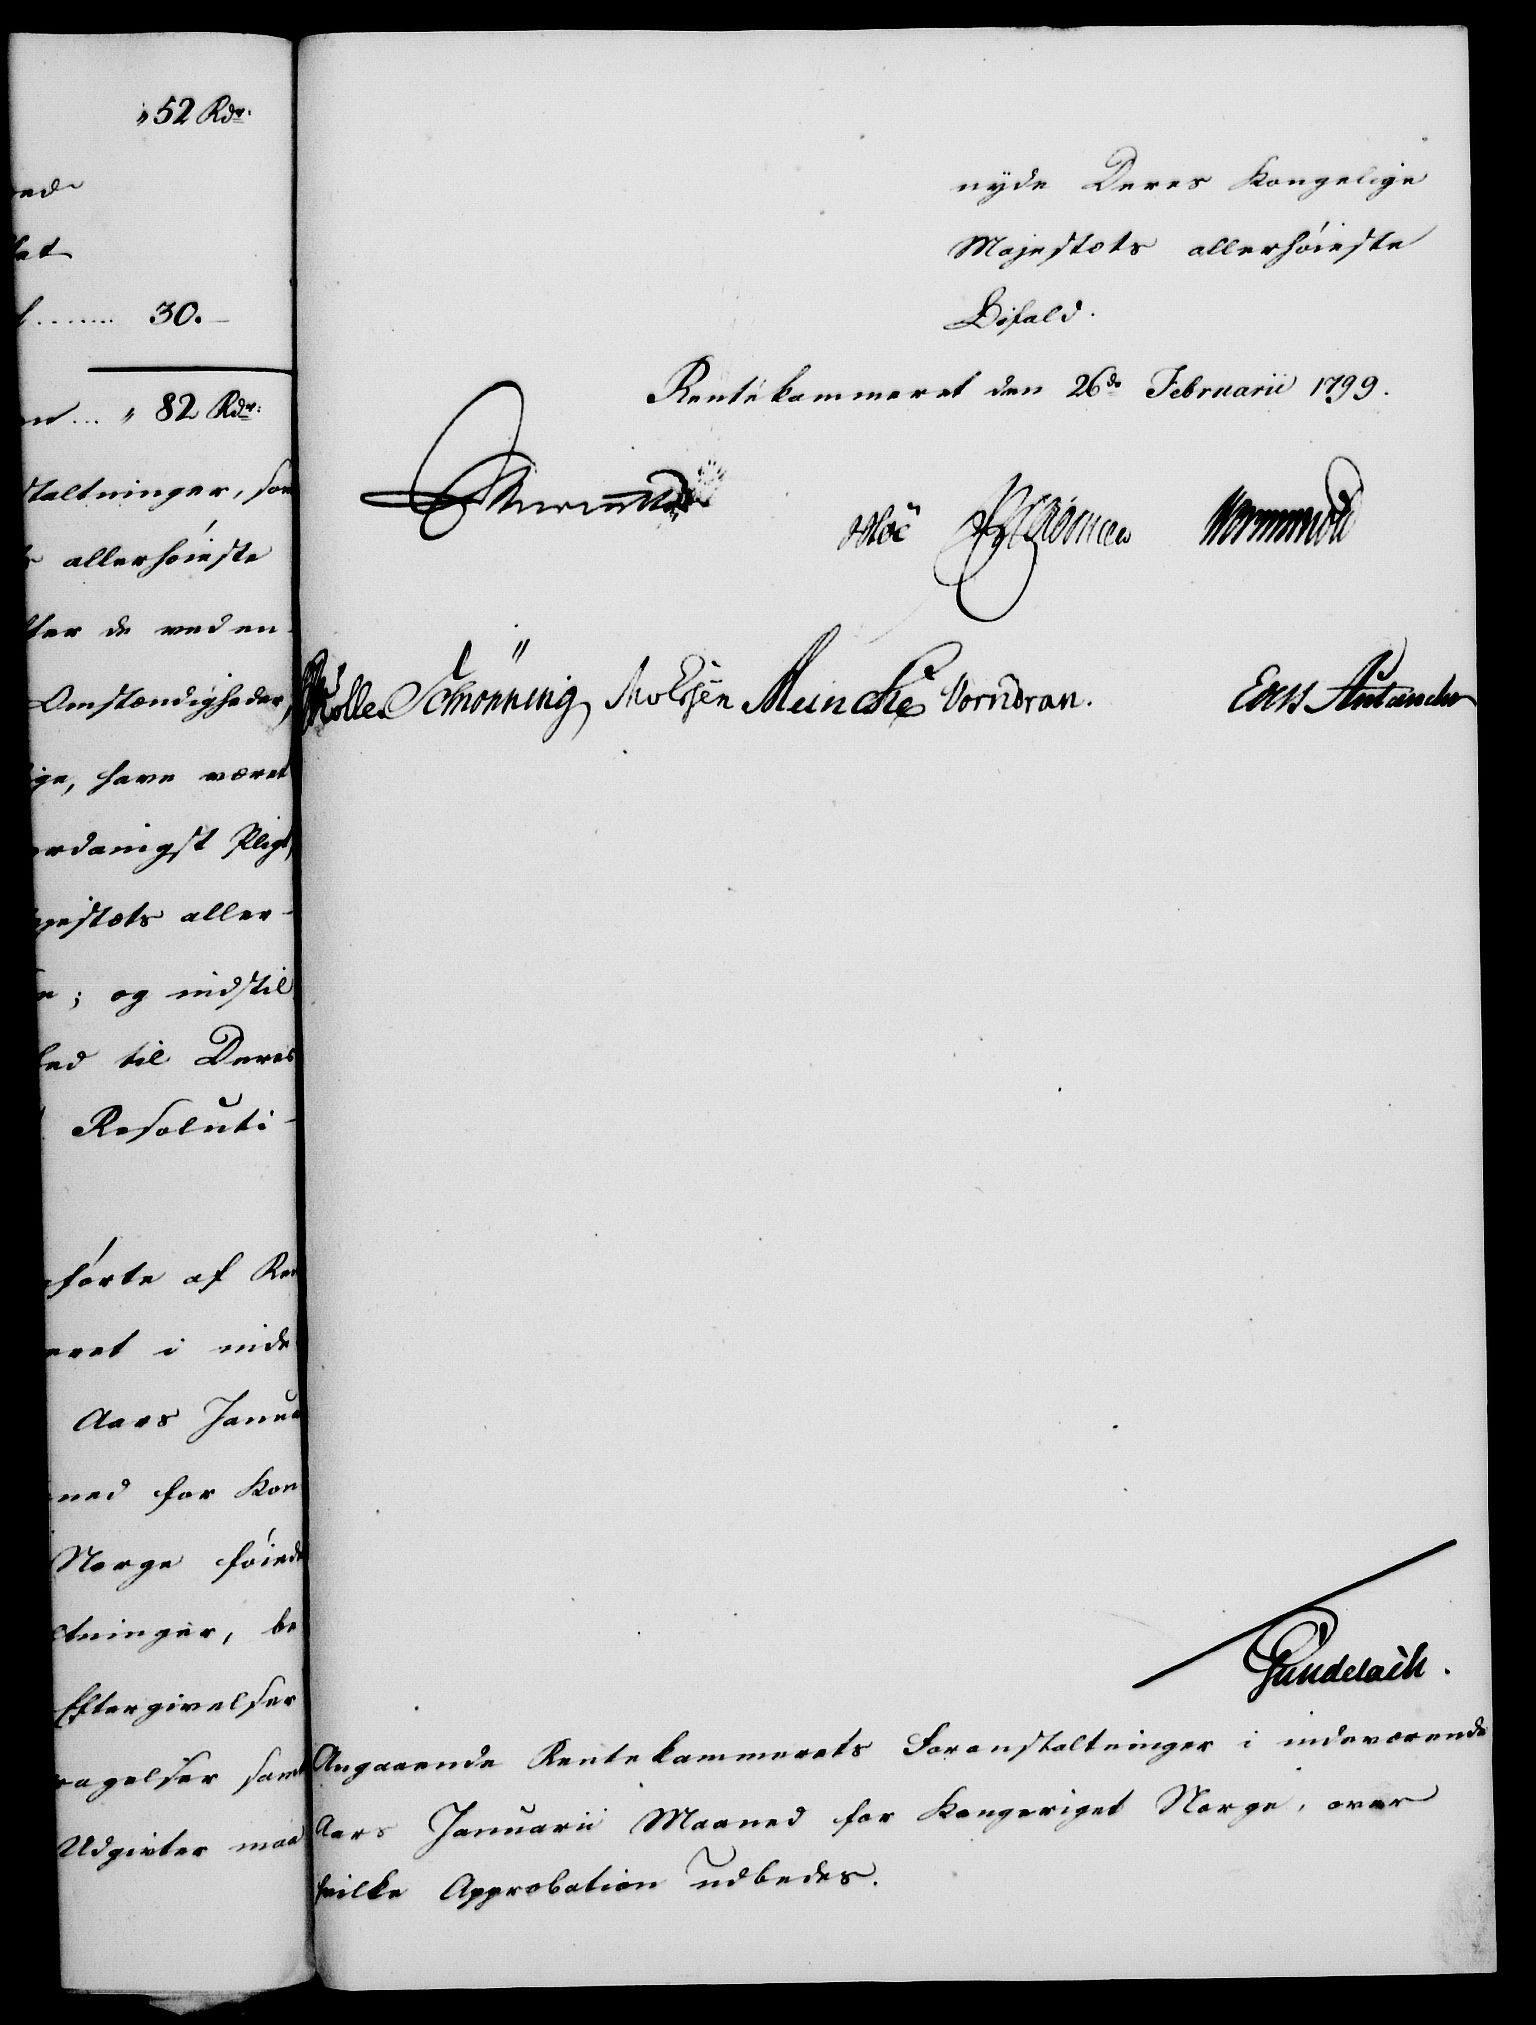 " 52 Rdr:
30.
" 82 Rdr:
staltninger, som
allerhöieste
de ved en
Omstændigheder,
have været
danigst Pligt,
jestæts aller-
; og indstil
til Deres
Resoluti-
förte af Ren
eret i inde
Aars Janua
ned for Kon
Norge föiede
ltninger, be
Eftergivelser
ragelser samt
Udgivter maa
nyde Deres Kongelige
Majestæts allerhöieste
Bifald.
Rentekammeret den 26de Februarii 1799.
Wormskiold
Möller Schiönning Moldsen Meincke Vorndran.
Gundelach.
Angaaende Rentekammerets Foranstaltninger i indeværende
Aars Januarii Maaned for Kongeriget Norge, over
hvilke Approbation udbedes.